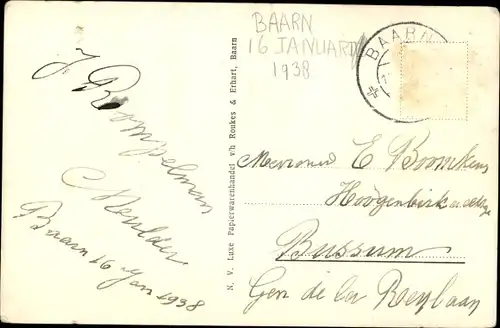 BAARN
16 JANUARI
1938
BAARN
J. Boompelmans
Baarn 16 Jan 1938
N. V. Luxe Papierwarenhandel v/h Roukes & Erhart, Baarn
Mevrouw E Boomkens
Bussum
Gen de la Reylaan